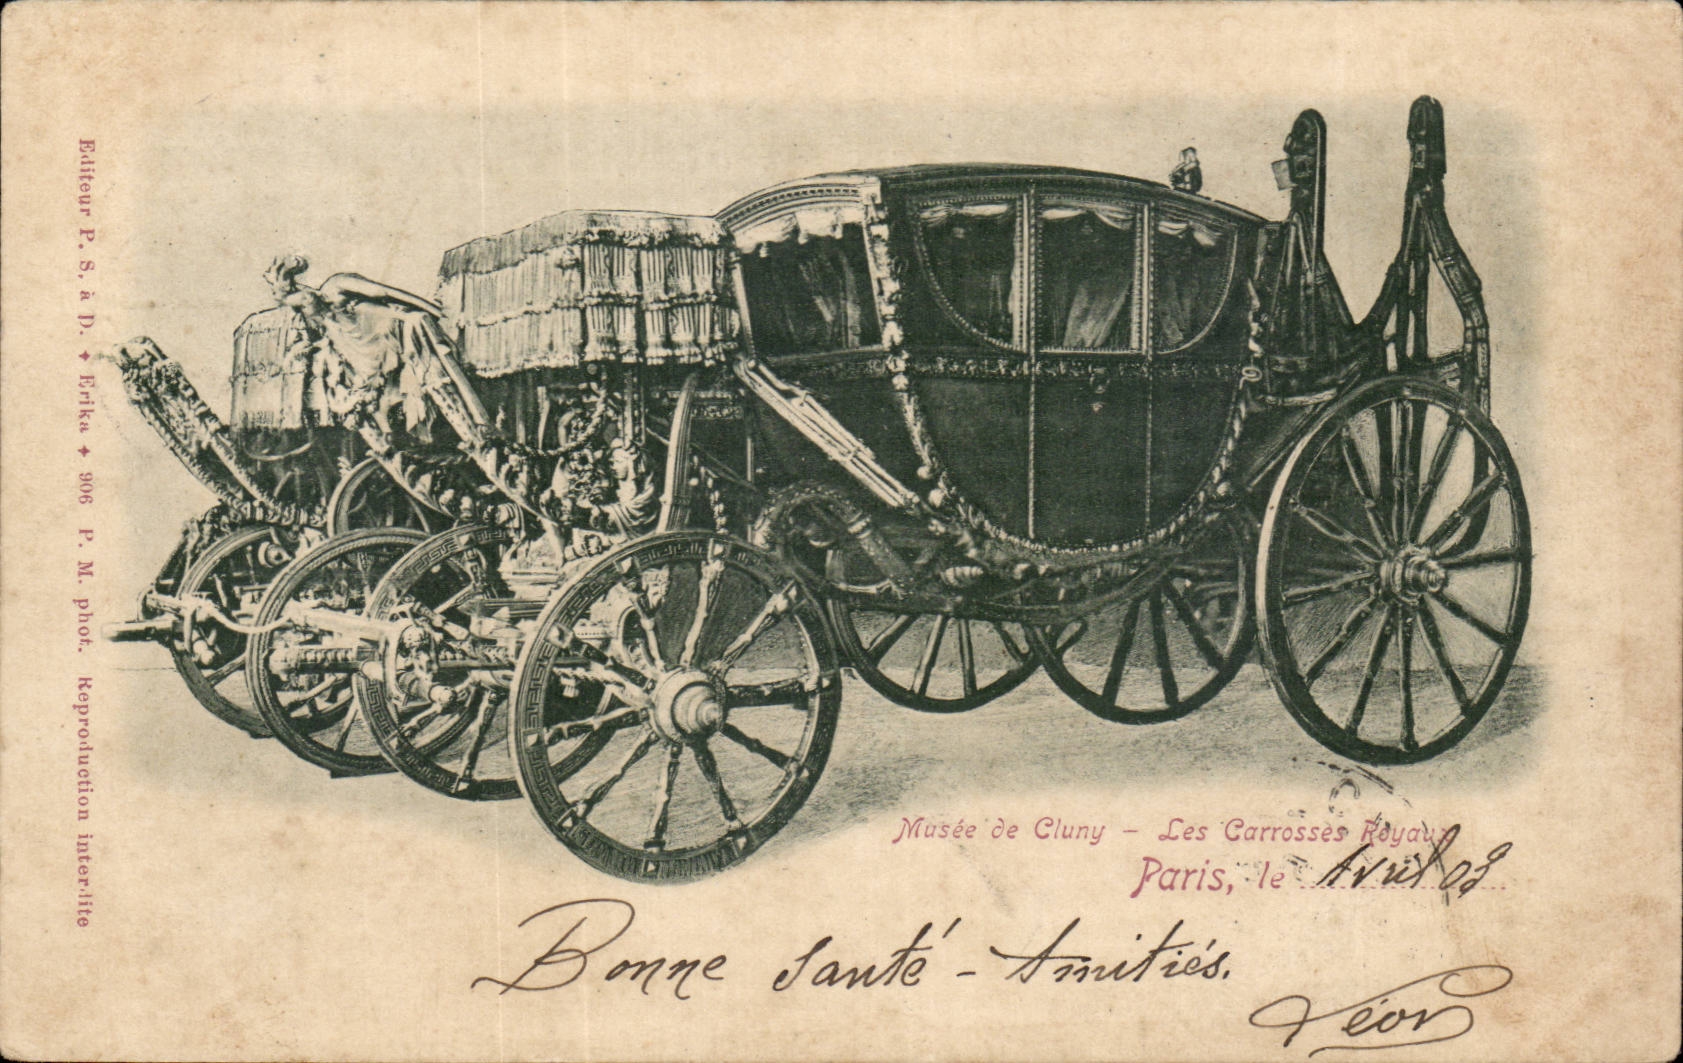 Editeur P. S. à D. ✦ Erika ✦ 906 P. M. phot. Reproduction interdite
Musée de Cluny – Les Carrosses Royaux
Paris, le Avril 03
Bonne Santé - Amitiés.
Léon